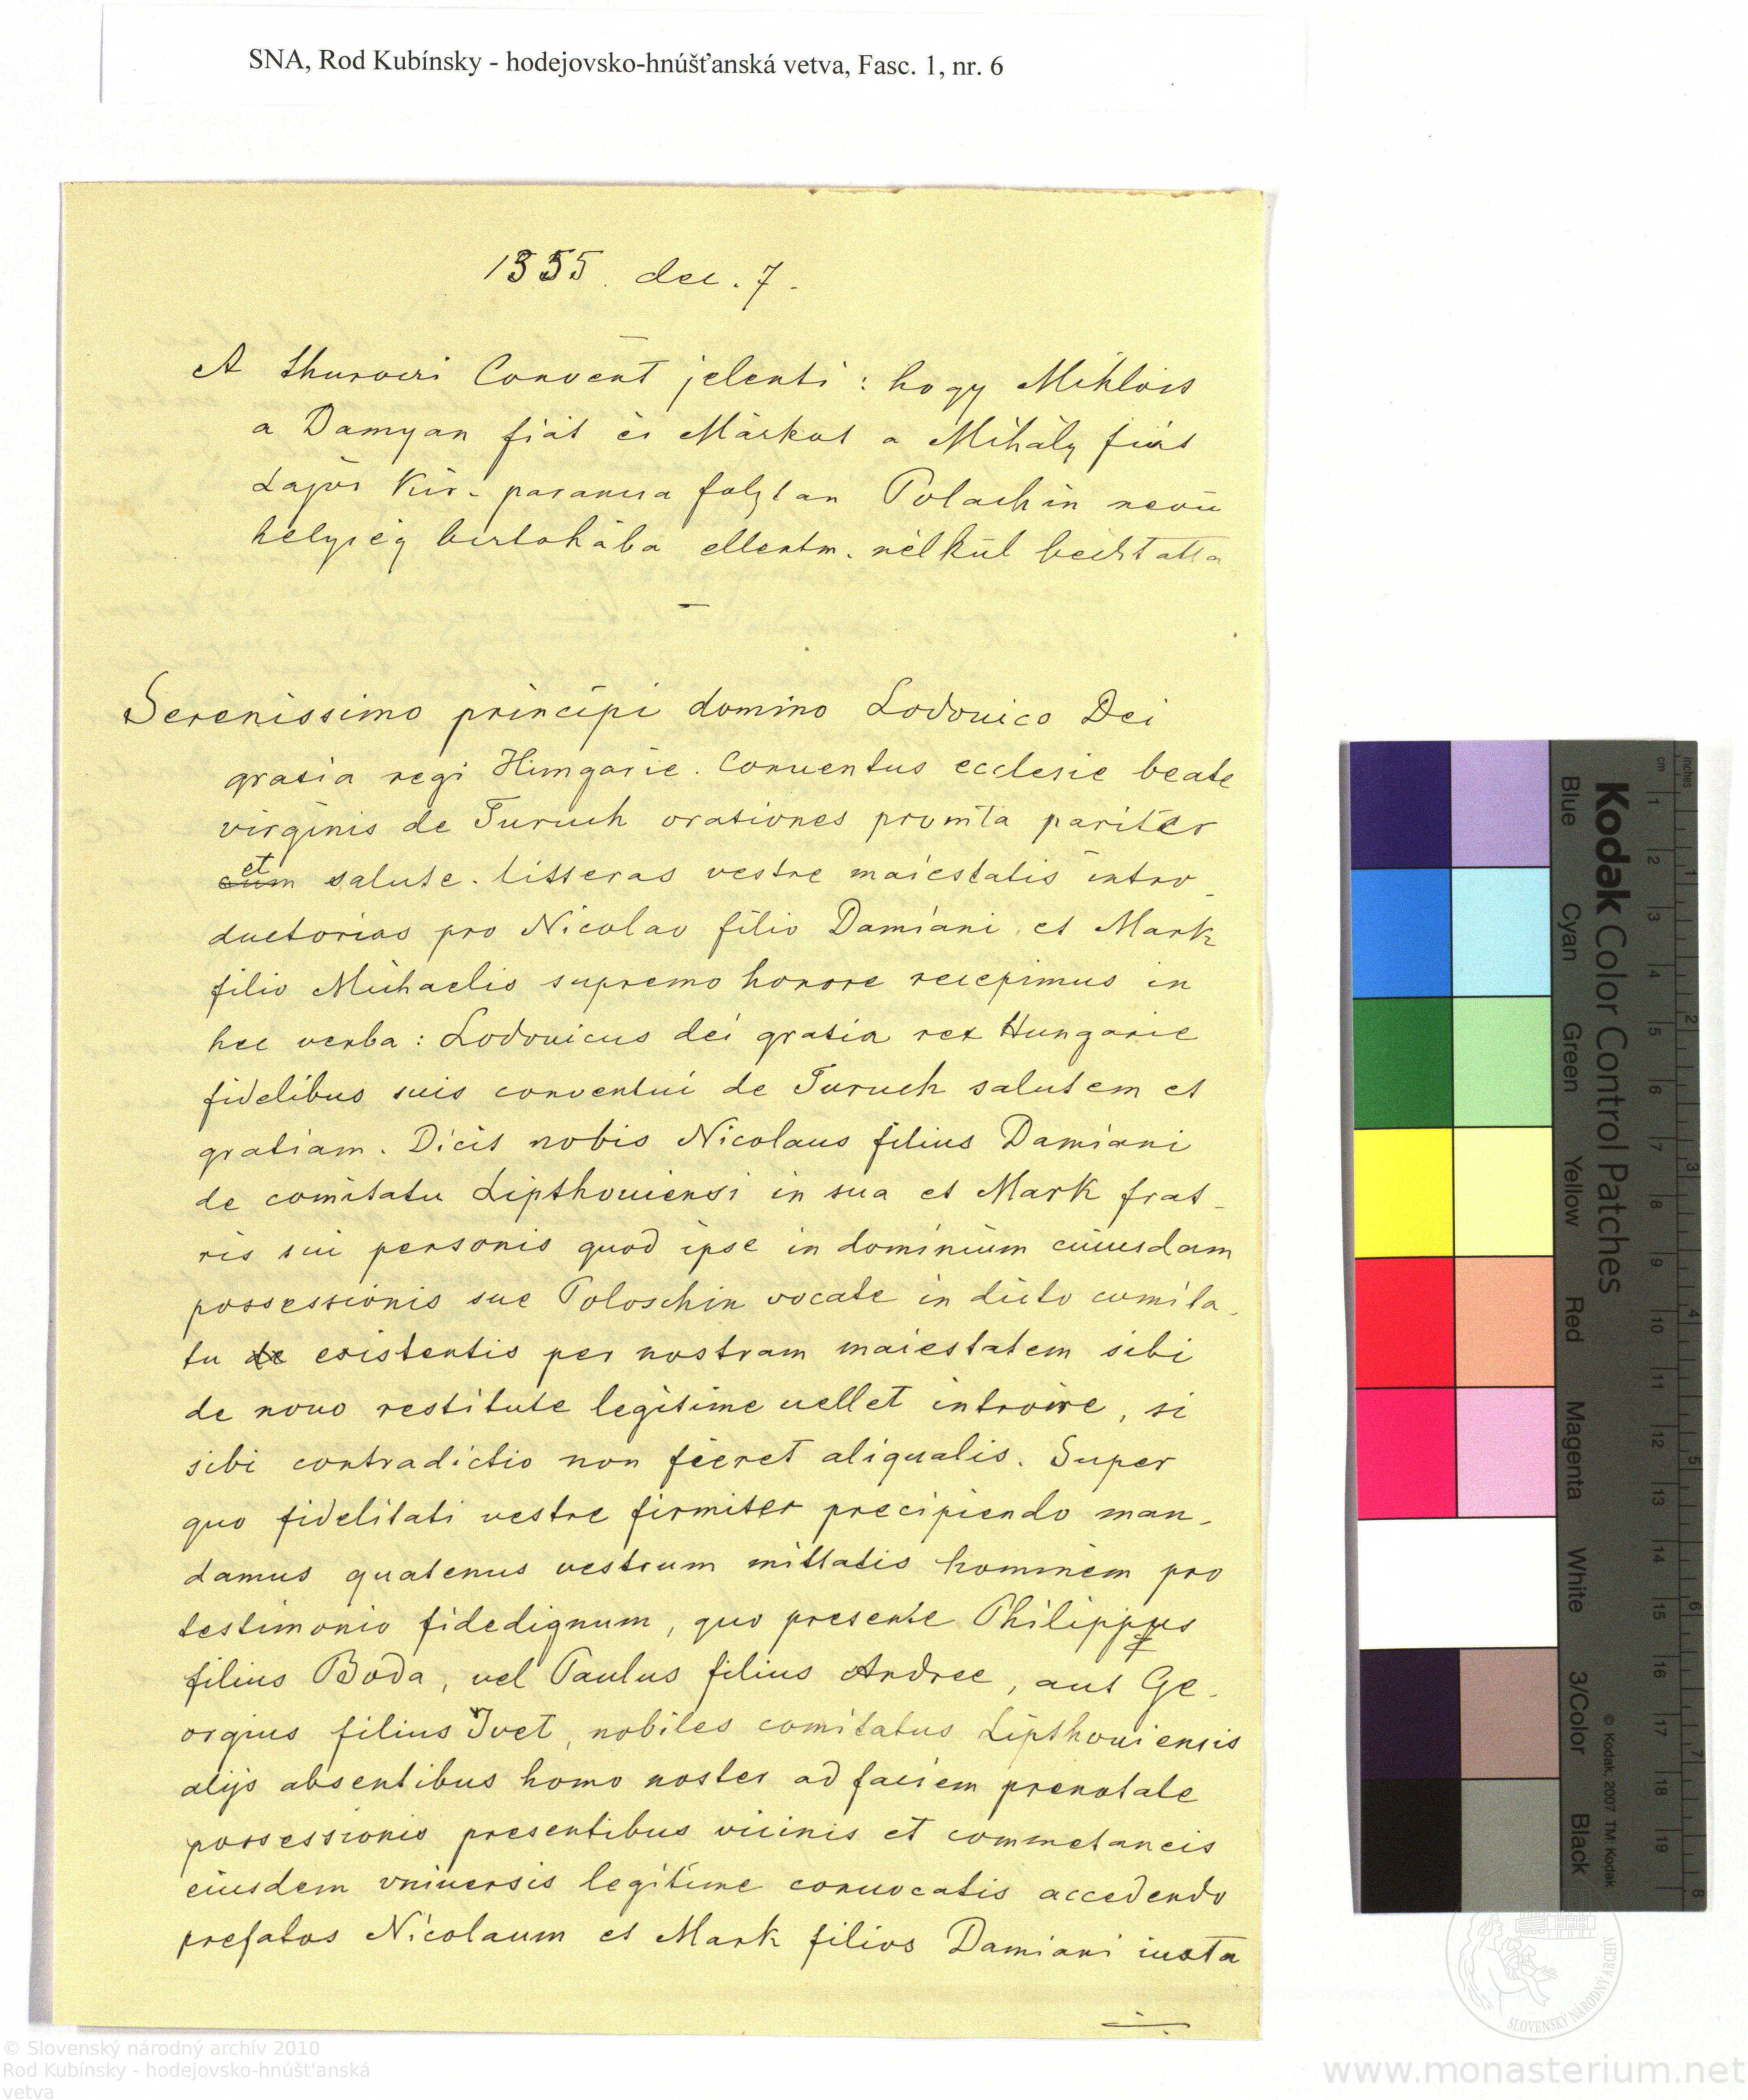 SNA, Rod Kubínsky - hodejovsko-hnúšťanská vetva, Fasc. 1, nr. 6
1355. dec. 7.
A thuroczi Convent jelenti : hogy Miklóst
a Damyan fiát és Márkot a Mihály fiát
Lajos Kir. parancsa folytan Polachin nevü
helység birtokába ellentm. nélkül beiktatta
—
Serenissimo principi domino Lodouico Dei
gratia regi Hungarie. Conuentus ecclesie beate
virginis de Turuch orationes promta pariter
cum et salute. litteras vestre maiestatis intro-
ductorias pro Nicolao filio Damiani et Mark
filio Michaelis supremo honore recepimus in
hec verba : Lodouicus dei gratia rex Hungarie
fidelibus suis conventui de Turuch salutem et
gratiam. Dicit nobis Nicolaus filius Damiani
de comitatu Lipthouiensi in sua et Mark frat-
ris sui personis quod ipse in dominium cuiusdam
possessionis sue Poloschin vocate in dicto comita-
tu de existentis per nostram maiestatem sibi
de nouo restitute legitime uellet introire, si
sibi contradictio non fieret aliqualis. Super
quo fidelitati vestre firmiter precipiendo man-
damus quatenus vestrum mittatis hominem pro
testimonio fidedignum, quo presente Philippus
filius Boda, uel Paulus filius Andree, aut Ge-
orgius filius Ivet, nobiles comitatus Lipthouiensis
alijs absentibus homo noster ad faciem prenotate
possessionis presentibus vicinis et commetaneis
eiusdem vniuersis legitime conuocatis accedendo
prefatos Nicolaum et Mark filios Damiani iuxta
Kodak Color Control Patches
Blue Cyan Green Yellow Red Magenta White 3/Color Black
© Kodak, 2007 TM: Kodak
inches 1 2 3 4 5 6 7 8
cm 1 2 3 4 5 6 7 8 9 10 11 12 13 14 15 16 17 18 19
SLOVENSKÝ NÁRODNÝ ARCHÍV
© Slovenský národný archív 2010
Rod Kubínsky - hodejovsko-hnúšt'anská
vetva
www.monasterium.net